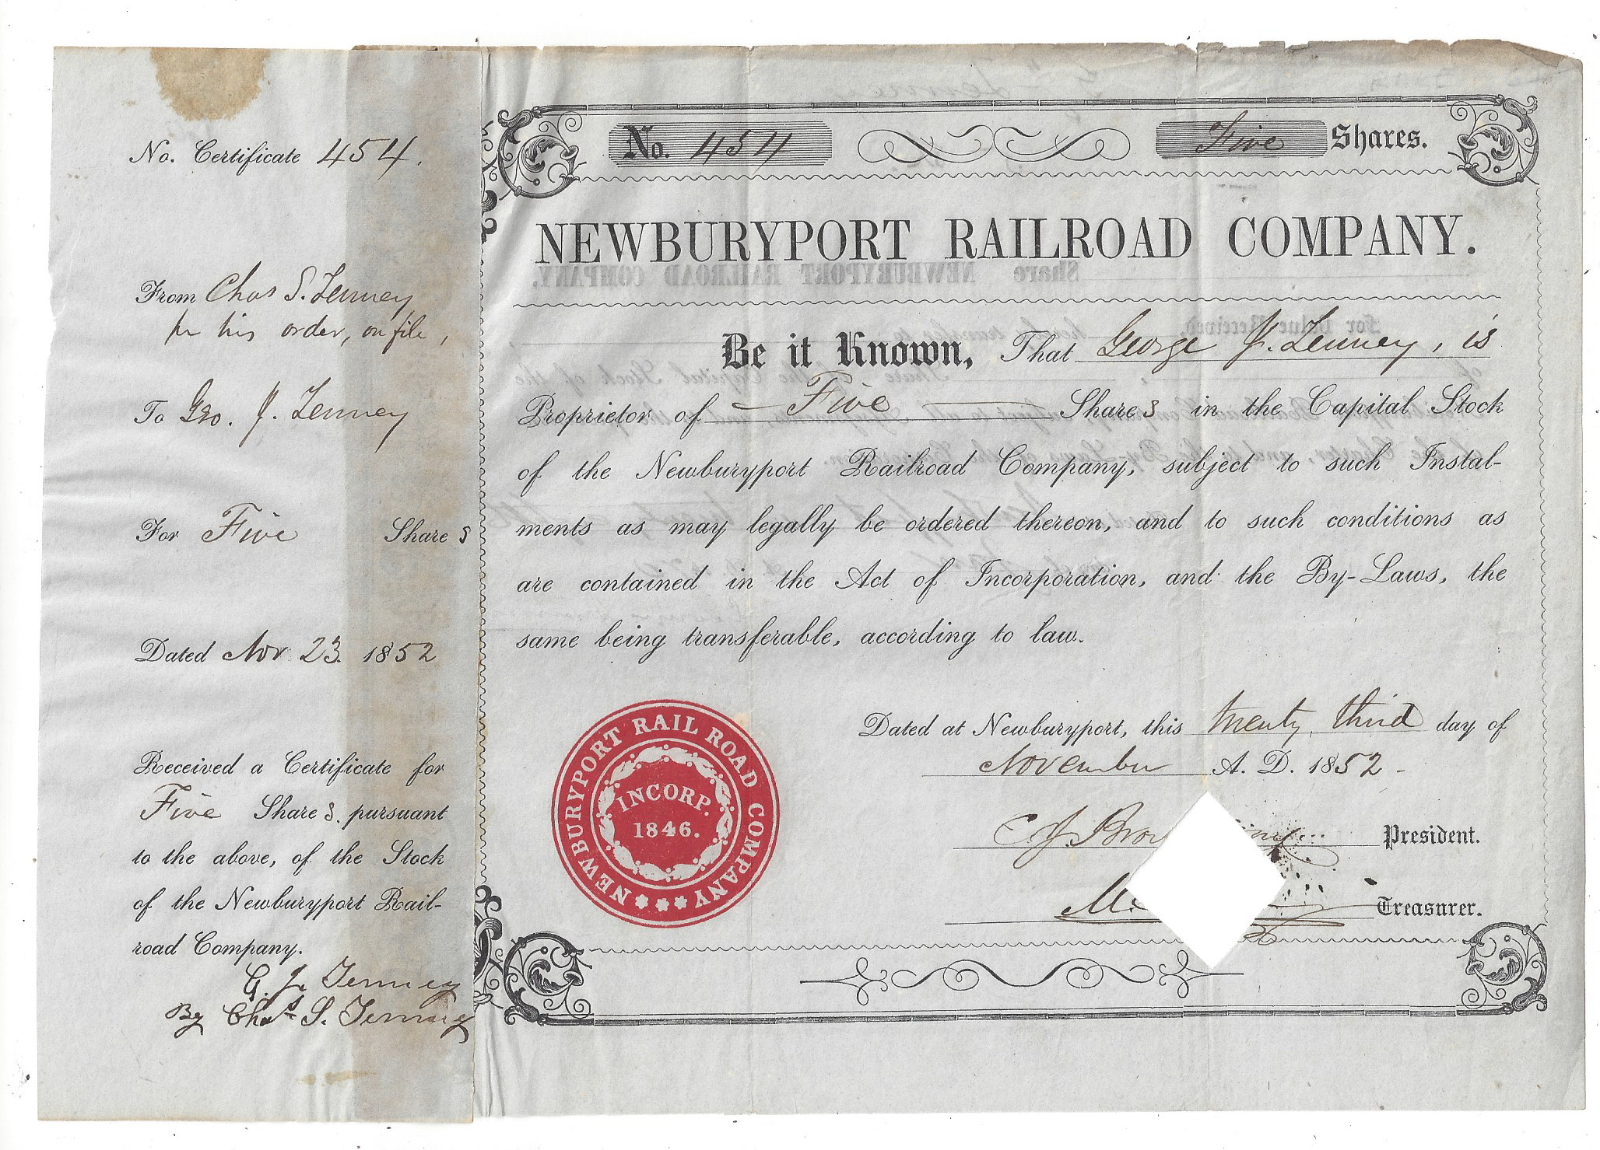 No. Certificate 454.
From Chas S. Tenney
pr his order, on file,
To Geo. J. Tenney
For Five Shares
Dated Nov 23. 1852
Received a Certificate for
Five Shares, pursuant
to the above, of the Stock
of the Newburyport Rail-
road Company.
G. J. Tenney
By Chas. S. Tenney
No. 454
Five Shares.
NEWBURYPORT RAILROAD COMPANY.
Be it Known, That George J. Tenney, is
Proprietor of Five Shares in the Capital Stock
of the Newburyport Railroad Company, subject to such Instal-
ments as may legally be ordered thereon, and to such conditions as
are contained in the Act of Incorporation, and the By-Laws, the
same being transferable, according to law.
NEWBURYPORT RAIL ROAD COMPANY
INCORP.
1846.
Dated at Newburyport, this twenty third day of
November A. D. 1852
President.
Treasurer.